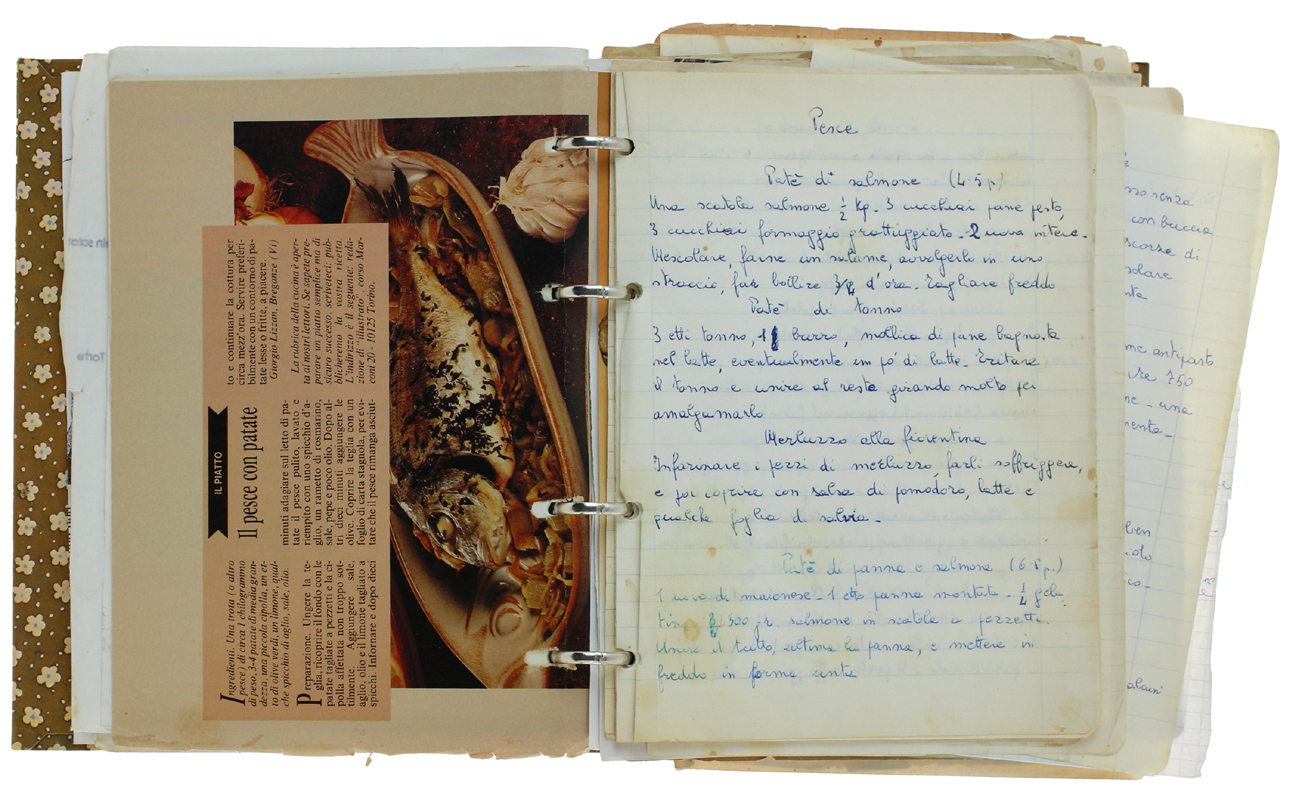 IL PIATTO
Il pesce con patate
Ingredienti. Una trota (o altro
pesce) di circa 1 chilogrammo
di peso, 3-4 patate di media gran-
dezza, una piccola cipolla, un et-
to di olive verdi, un limone, qual-
che spicchio di aglio, sale, olio.
Preparazione. Ungere la te-
glia, ricoprire il fondo con le
patate tagliate a pezzetti e la ci-
polla affettata non troppo sot-
tilmente. Aggiungere sale,
aglio, olio e il limone tagliato a
spicchi. Infornare e dopo dieci
minuti adagiare sul letto di pa-
tate il pesce pulito, lavato e
riempito con uno spicchio d'a-
glio, un rametto di rosmarino,
sale, pepe e poco olio. Dopo al-
tri dieci minuti aggiungere le
olive. Coprire la teglia con un
foglio di carta stagnola, per evi-
tare che il pesce rimanga asciut-
to e continuare la cottura per
circa mezz'ora. Servire preferi-
bilmente con un contorno di pa-
tate lesse o fritte, a piacere.
Giorgio Lizzan, Breganze (Vi)
La rubrica della cucina è aper-
ta ai nostri lettori. Se sapete pre-
parare un piatto semplice ma di
sicuro successo, scriveteci: pub-
blicheremo la vostra ricetta.
L'indirizzo è il seguente: reda-
zione di "illustrato", corso Mar-
coni 20 - 10125 Torino.
Pesce
Patè di salmone (4-5 p)
Una scatola salmone ½ kg - 3 cucchiai pane pesto,
3 cucchiai formaggio grattuggiato - 2 uova intere -
Mescolare, farne un salame, avvolgerlo in uno
straccio, far bollire 3/4 d'ora - Tagliare freddo
Patè di tonno
3 etti tonno, 1 burro, mollica di pane bagnata
nel latte, eventualmente un po' di latte. Tritare
il tonno e unire al resto girando molto per
amalgamarlo
Merluzzo alla fiorentina
Infarinare i pezzi di merluzzo, farli soffriggere,
e poi coprire con salsa di pomodoro, latte e
qualche foglia di salvia -
Patè di panna e salmone (6-8 p.)
1 uovo di maionese - 1 etto panna montata - ¼ gela-
tina 300 gr salmone in scatola a pezzetti.
Unire il tutto, ultima la panna, e mettere in
freddo in forma unta
senza
con buccia
scorze di
antipasto
750
una